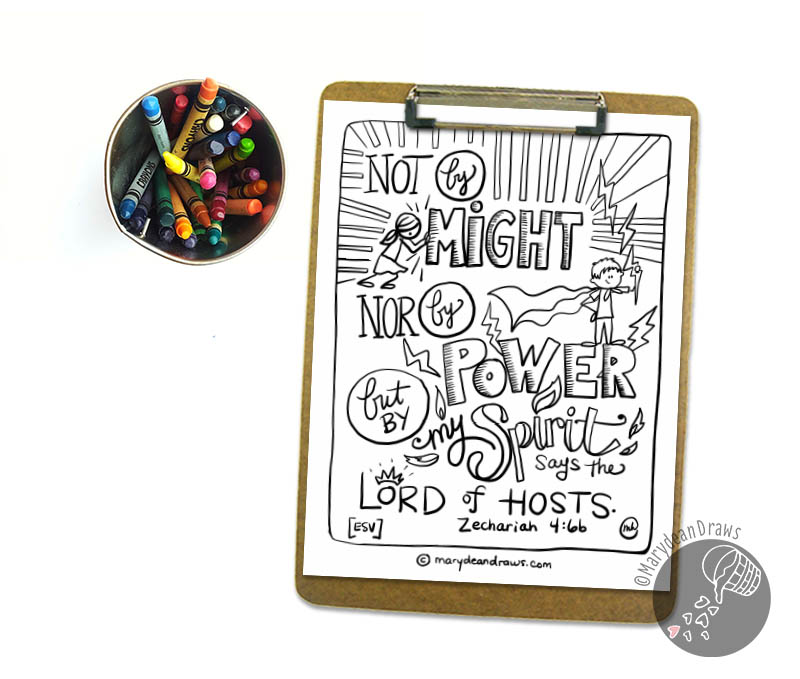 NOT by
MIGHT
NOR by
POWER
but BY
my Spirit
says the
LORD of HOSTS.
[ESV]
Zechariah 4:6b
© marydeandraws.com
©MarydeanDraws
CRAYONS